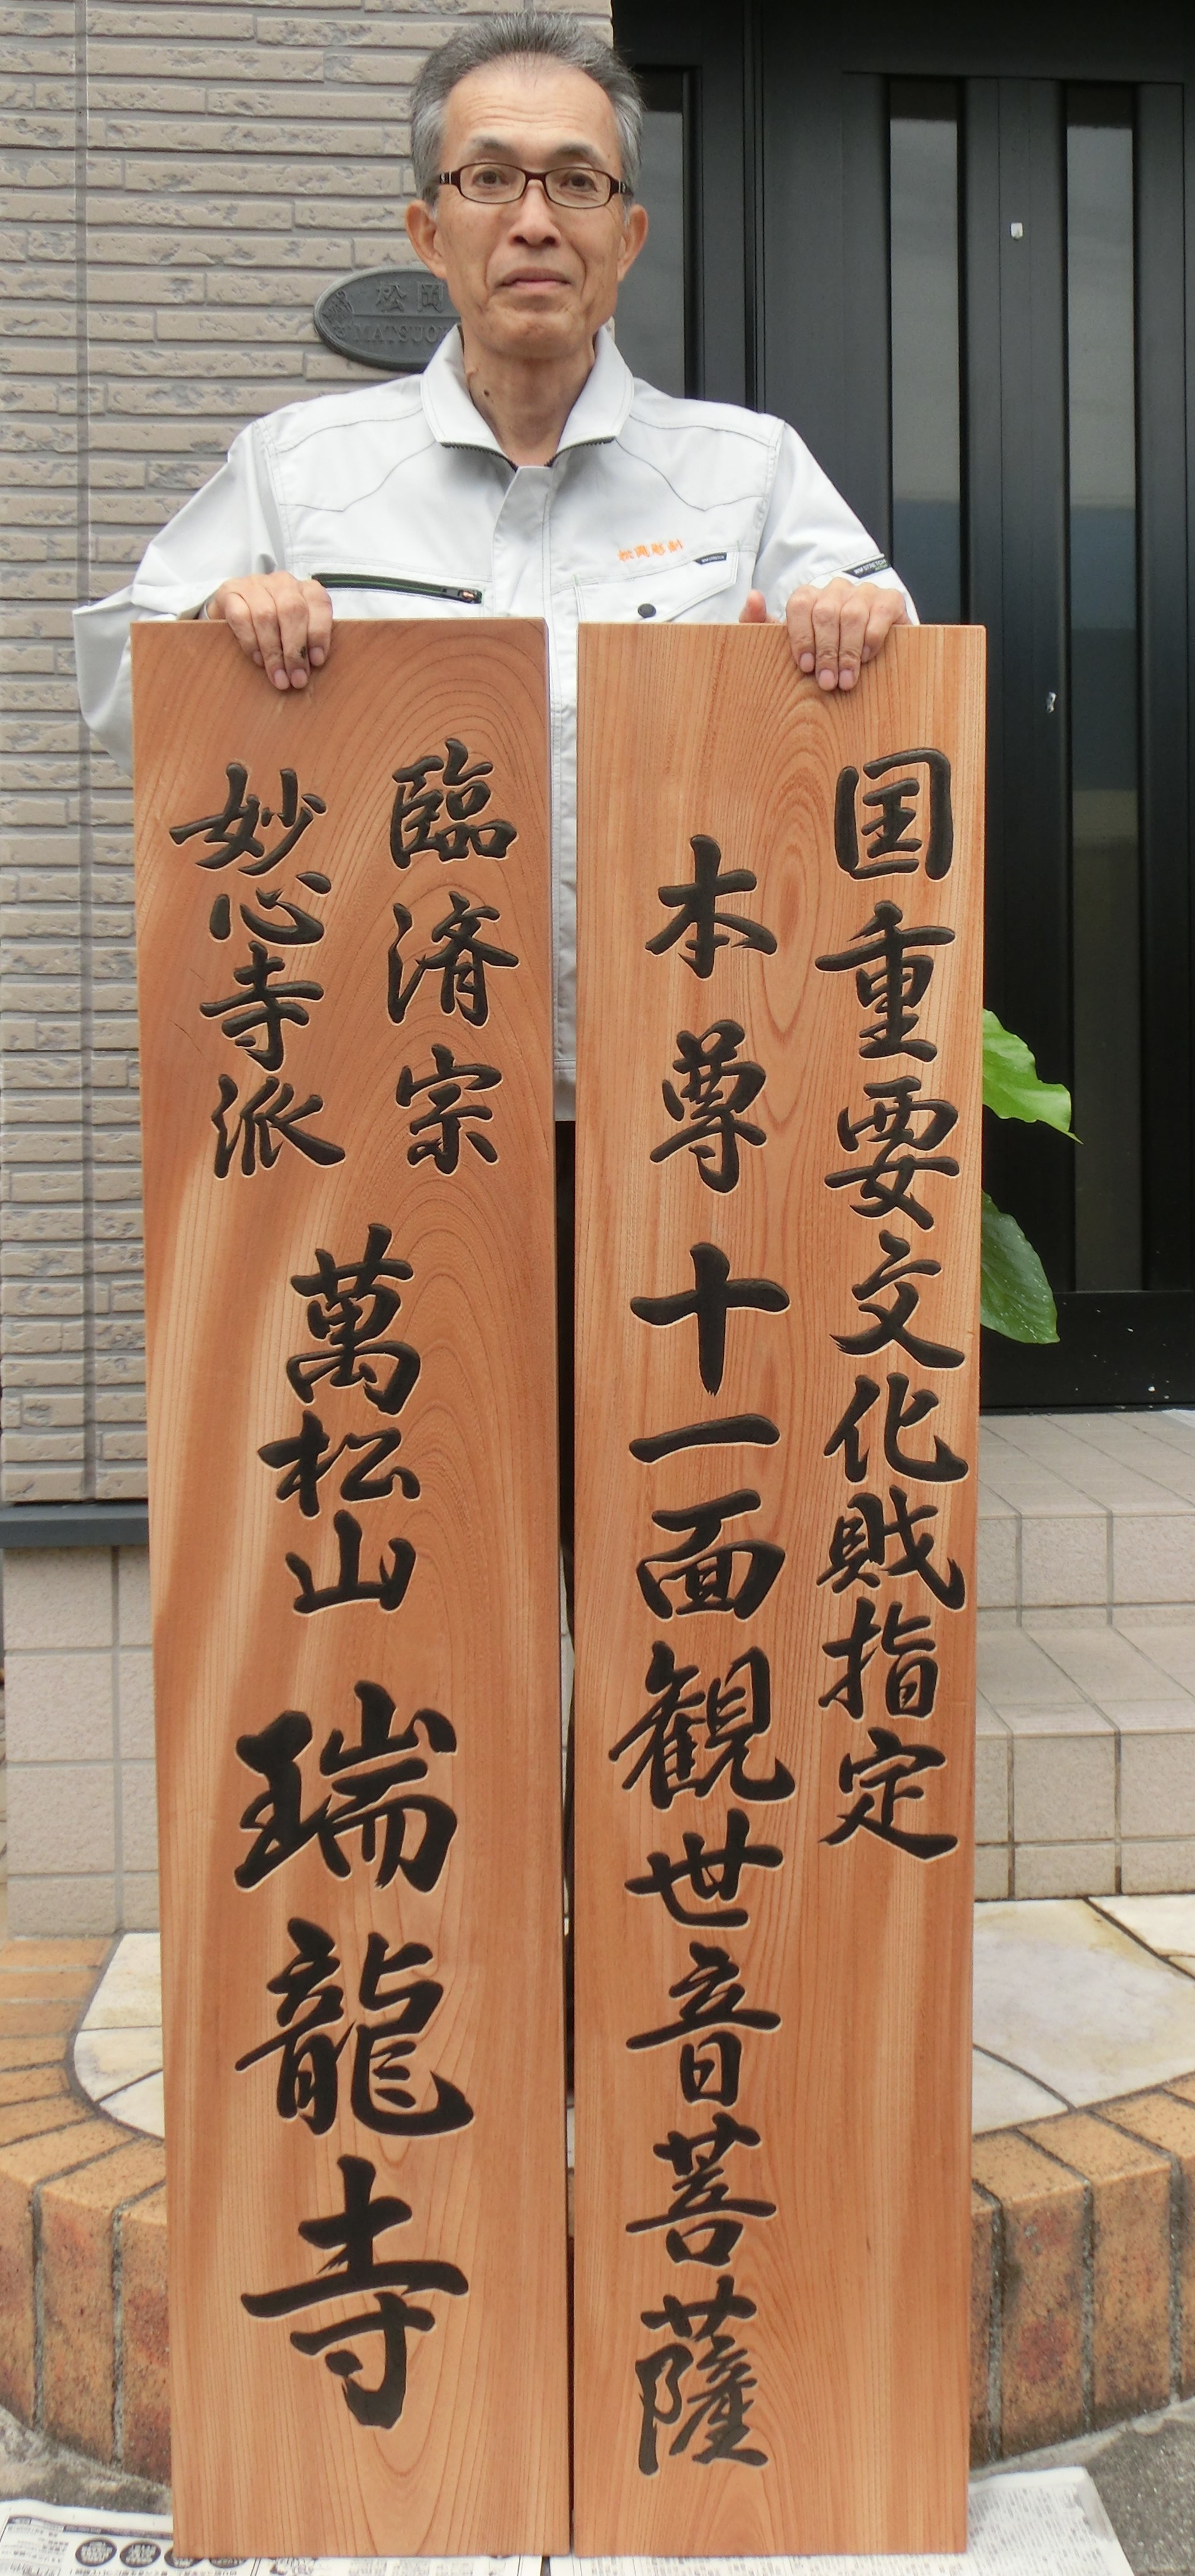 松岡
MATSUO
松岡彫刻
国重要文化財指定
本尊十一面観世音菩薩
臨済宗
妙心寺派
萬松山
瑞龍寺